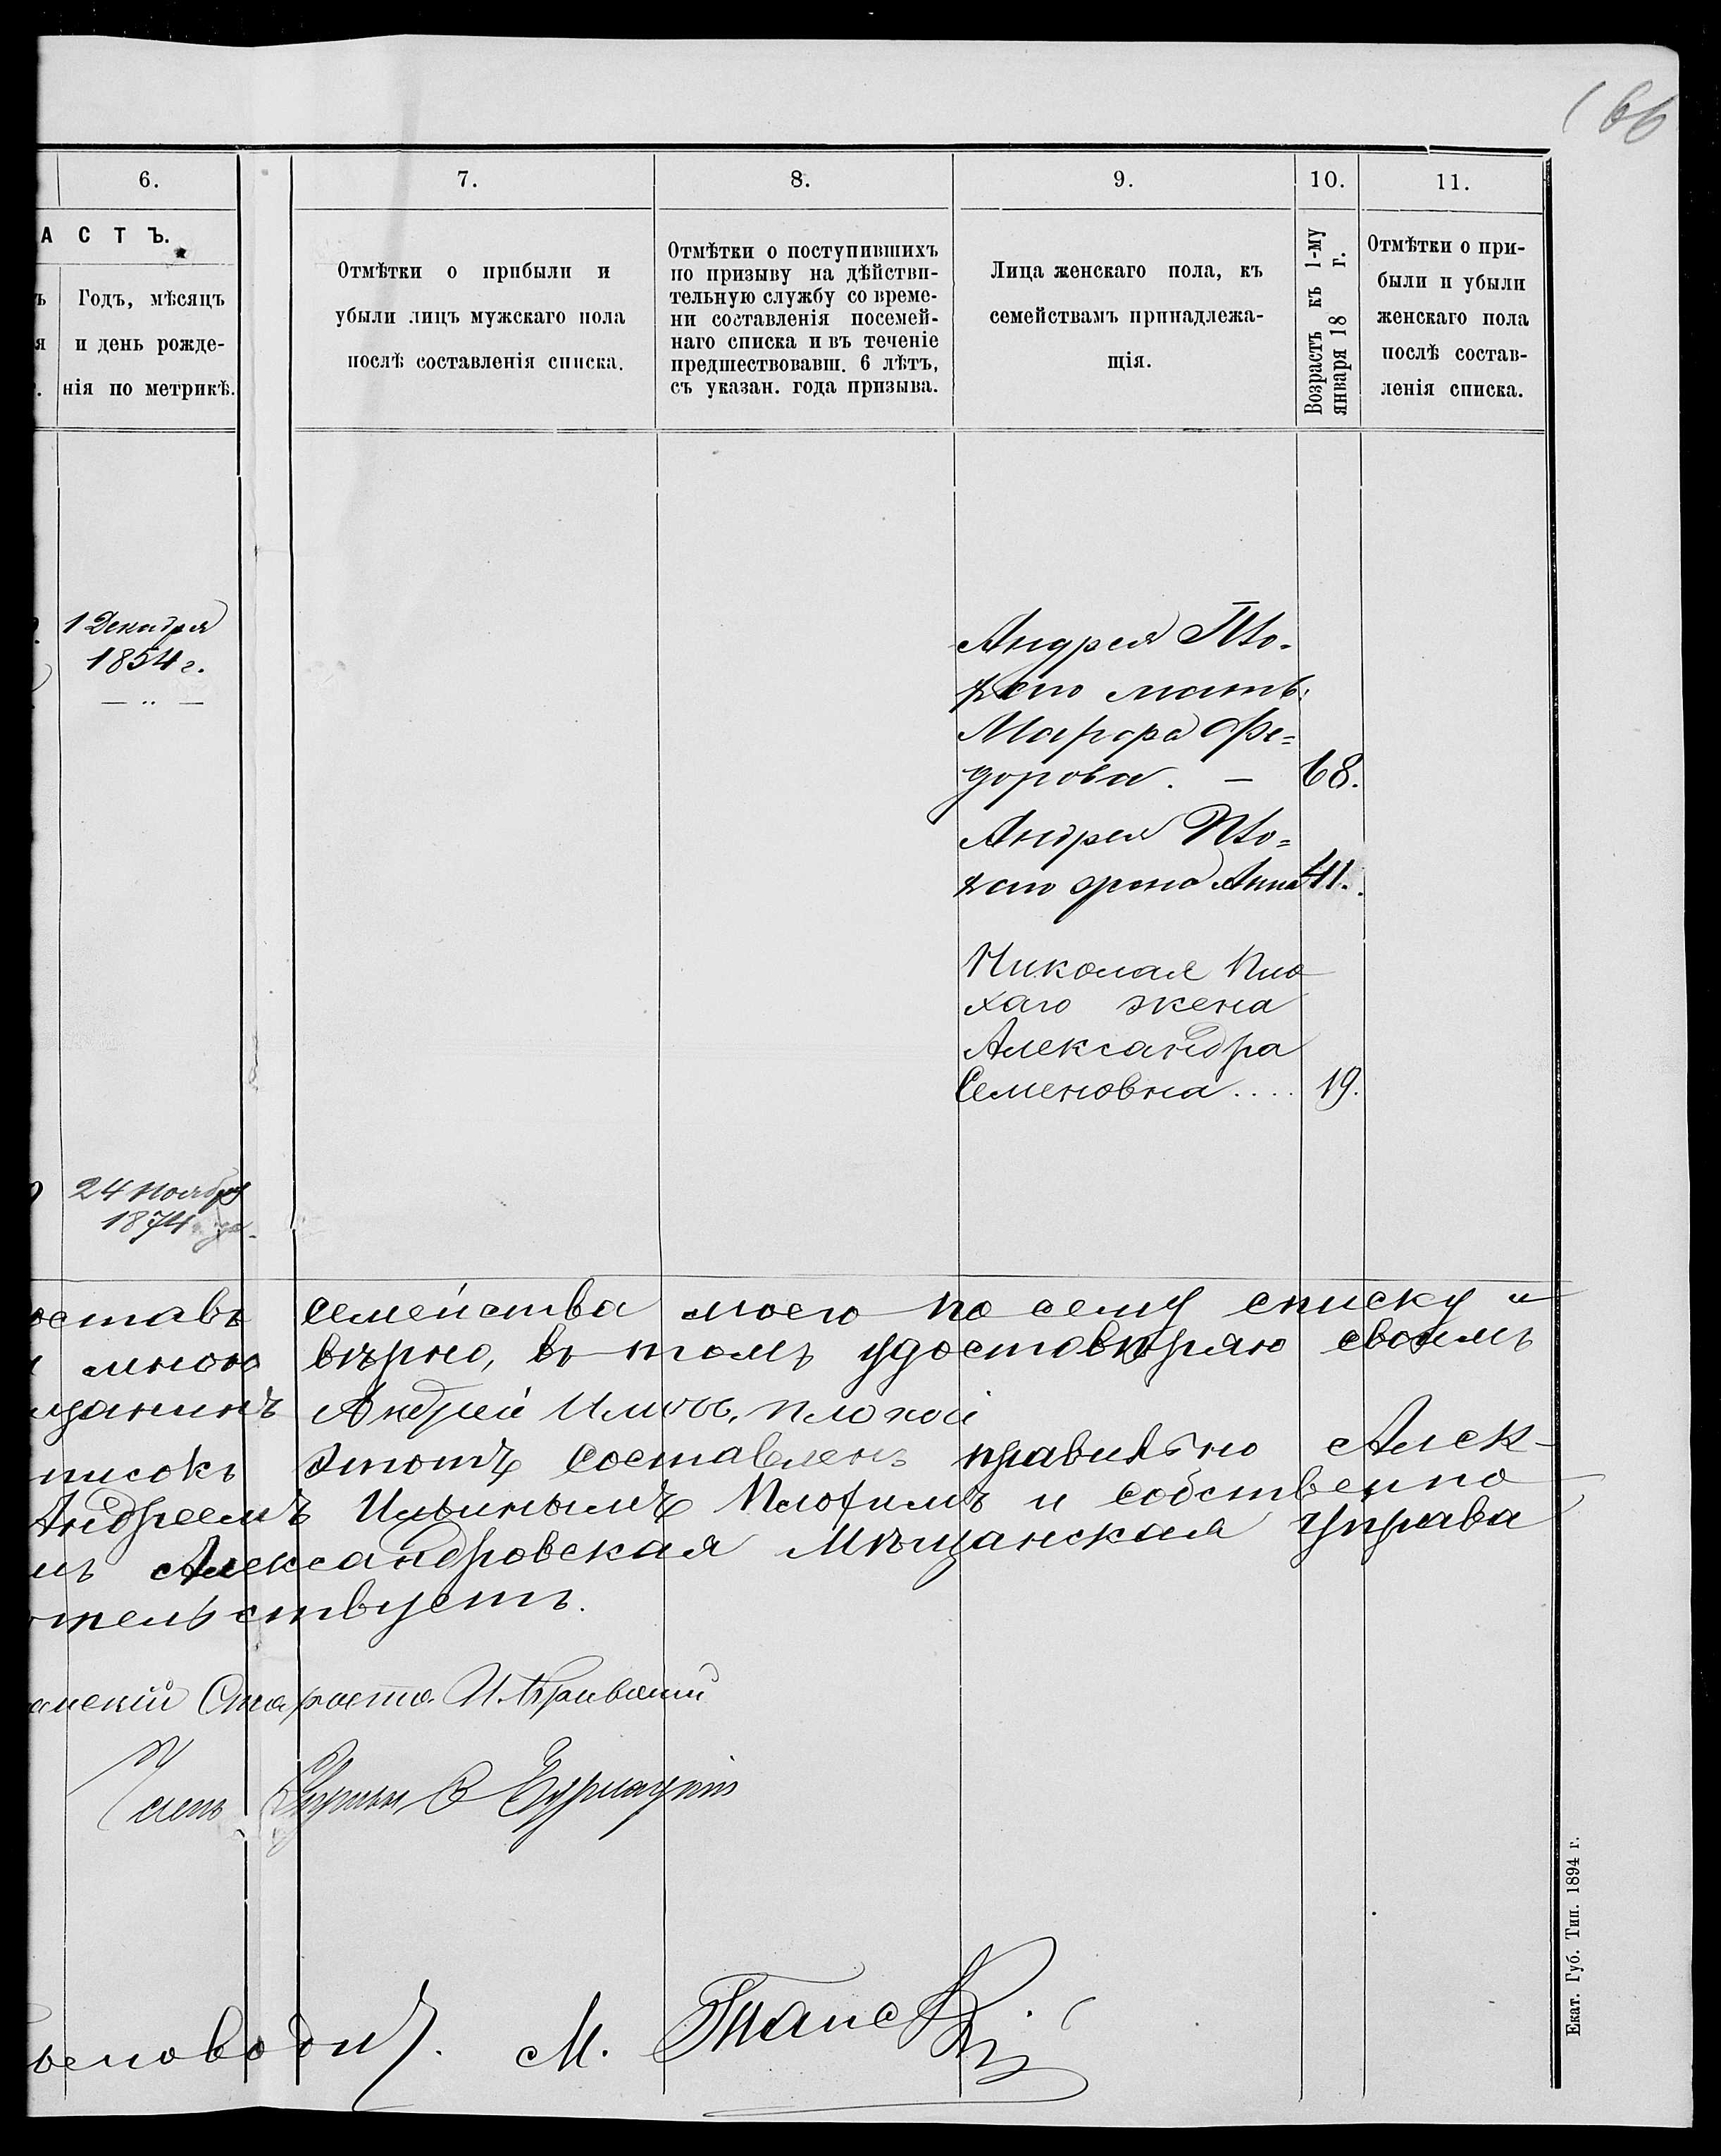 166
6.
7.
8.
9.
10.
11.
АСТЪ.
Годъ, мѣсяцъ
и день рожде-
нія по метрикѣ.
Отмѣтки о прибыли и
убыли лицъ мужскаго пола
послѣ составленія списка.
Отмѣтки о поступившихъ
по призыву на дѣйстви-
тельную службу со време-
ни составленія посемей-
наго списка и въ теченіе
предшествовавш. 6 лѣтъ,
съ указан. года призыва.
Лица женскаго пола, къ
семействамъ принадлежа-
щія.
Возрастъ къ 1-му
января 18 г.
Отмѣтки о при-
были и убыли
женскаго пола
послѣ состав-
ленія списка.
1 Декабря
1854 г.
Андрея Пло-
хаго мать
Марфа Фе-
дорова. — 68.
Андрея Пло-
хаго жена Анна 41.
Николая Пло
хаго жена
Александра
Семеновна .... 19.
24 Ноября
1874 года.
оставъ семейства моего по сему списку и
мною вѣрно, въ томъ удостовѣряю своимъ
щанинъ Андрей Плохой
писокъ этотъ составленъ правильно Алек-
Андреемъ Ильинымъ Плохимъ и собственно
мъ Александровская Мѣщанская Управа
тельствуетъ.
анскій Староста И.
Членъ Управы
ловодит. М.
Екат. Губ. Тип. 1894 г.